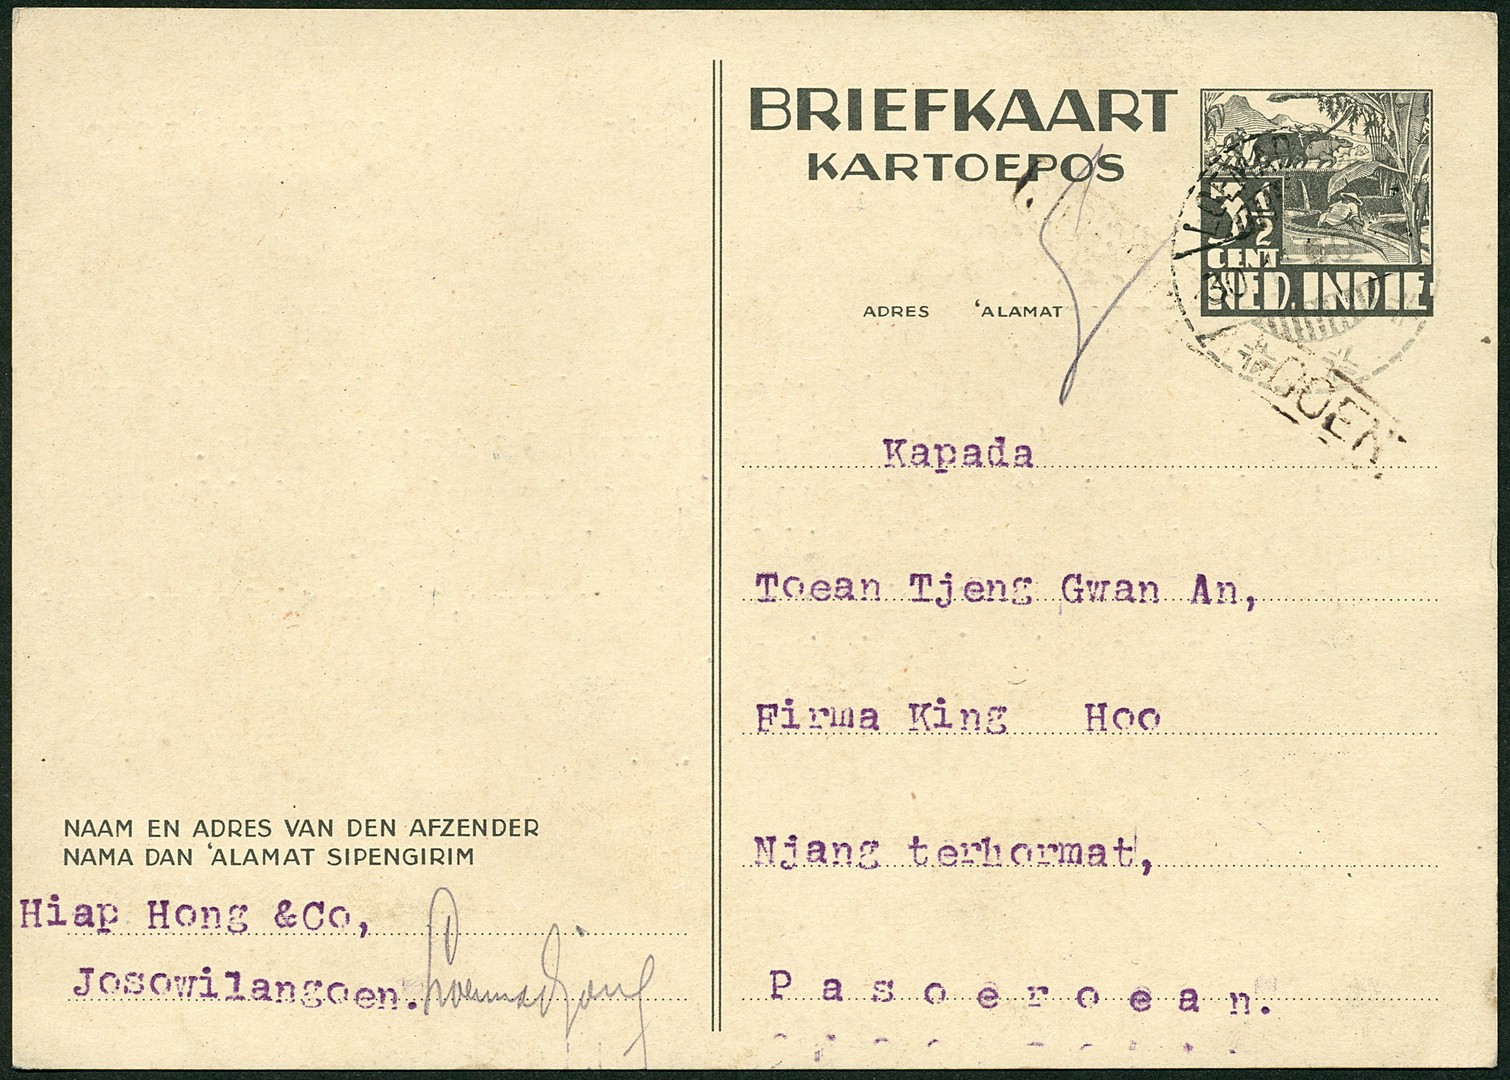 BRIEFKAART
KARTOEPOS
3½
CENT
NED. INDIE
ADRES 'ALAMAT
Kapada
Toean Tjeng Gwan An,
Firma King Hoo
Njang terhormat,
Pasoeroean.
NAAM EN ADRES VAN DEN AFZENDER
NAMA DAN 'ALAMAT SIPENGIRIM
Hiap Hong &Co,
Josowilangoen. Loemadjang